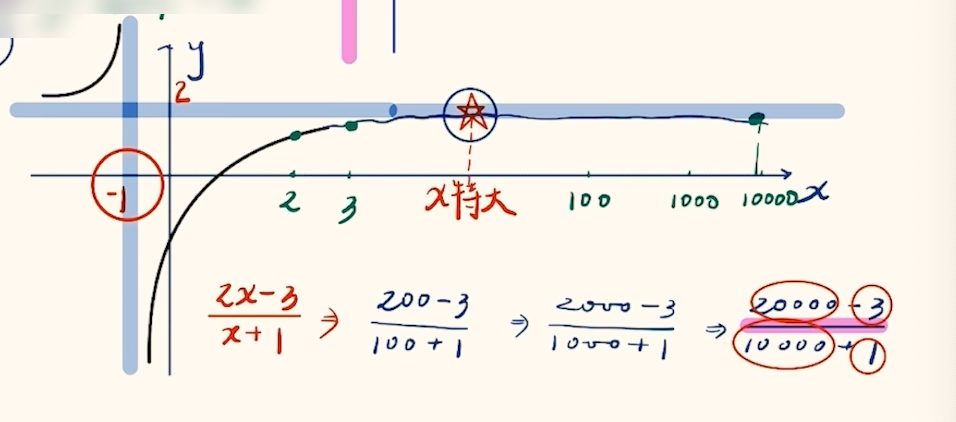 y
2
-1
2 3 x特大 100 1000 10000 x
2x-3 / x+1 ⇒ 200-3 / 100+1 ⇒ 2000-3 / 1000+1 ⇒ 20000-3 / 10000+1